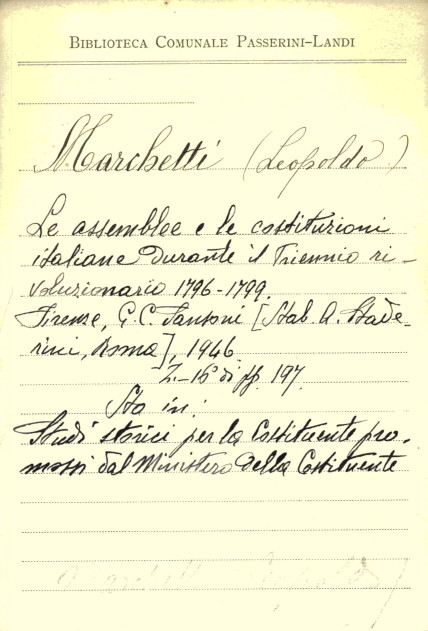 BIBLIOTECA COMUNALE PASSERINI-LANDI
Marchetti (Leopoldo)
Le assemblee e le costituzioni
italiane durante il Triennio ri-
voluzionario 1796-1799.
Firenze, G. C. Sansoni [Stab. A. Stade-
rini, Roma], 1946.
16° di pp. 197.
Sta in:
Studi storici per la Costituente pro-
mossi dal Ministero della Costituente